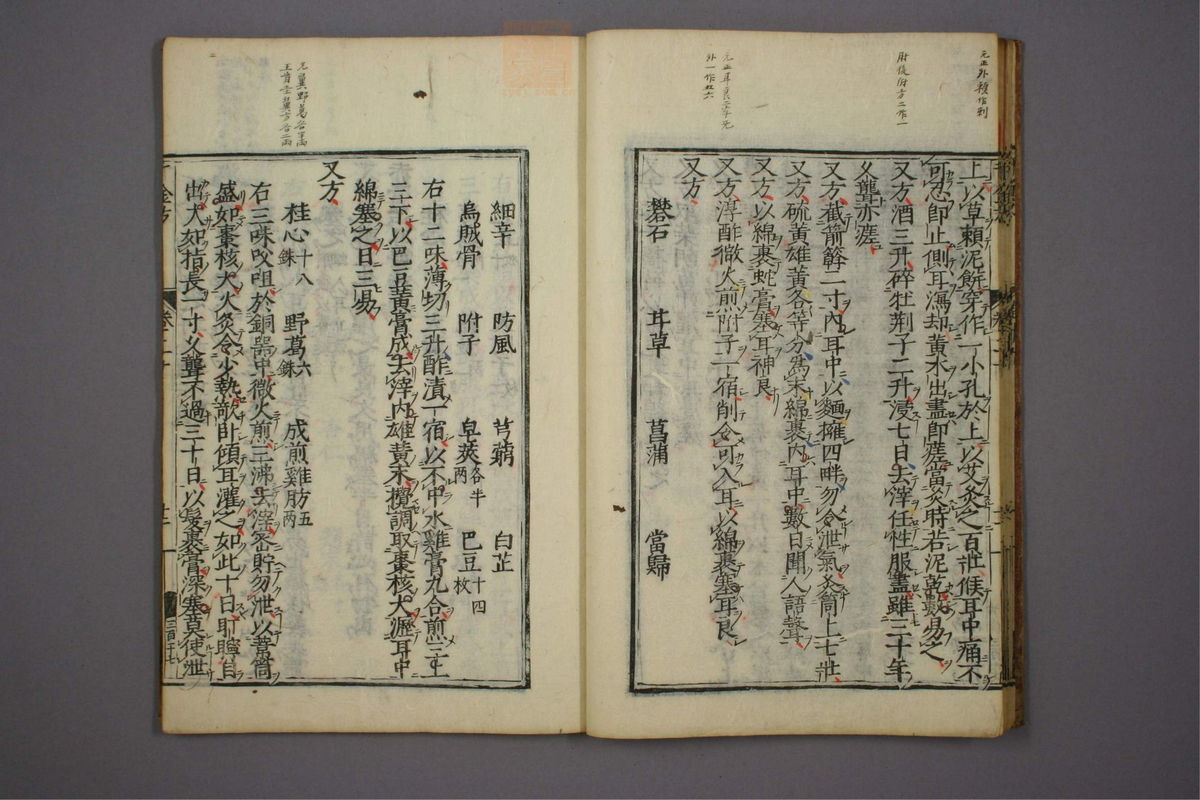 上以草頼泥餅穿作一小孔於上以艾灸之百壯候耳中痛不
可忍即止側耳瀉却黄水出盡即瘥當灸時若泥乾數易之
又方酒三升碎牡荆子二升浸七日去滓任性服盡雖三十年
久聾亦瘥
又方截箭簳二寸内耳中以麵擁四畔勿令泄氣灸筒上七壯
又方硫黄雄黄各等分爲末綿裹内耳中數日聞人語聲
又方以綿裹蛇膏塞耳神良
又方淳酢微火煎附子一宿削令可入耳以綿裹塞耳良
又方
礬石 甘草 菖蒲 當歸
細辛 防風 芎藭 白芷
烏賊骨 附子 皂莢各半兩 巴豆十四枚
右十二味薄切三升酢漬一宿以不中水雞膏九合煎三上
三下以巴豆黄膏成去滓内雄黄末攪調取棗核大瀝耳中
綿塞之日三易
又方
桂心十八銖 野葛六銖 成煎雞肪五兩
右三味㕮咀於銅器中微火煎三沸去滓密貯勿泄以葦筒
盛如棗核大火炙令少熱欹卧傾耳灌之如此十日耵聹自
出大如指長一寸久聾不過三十日以髮裹膏深塞莫使泄